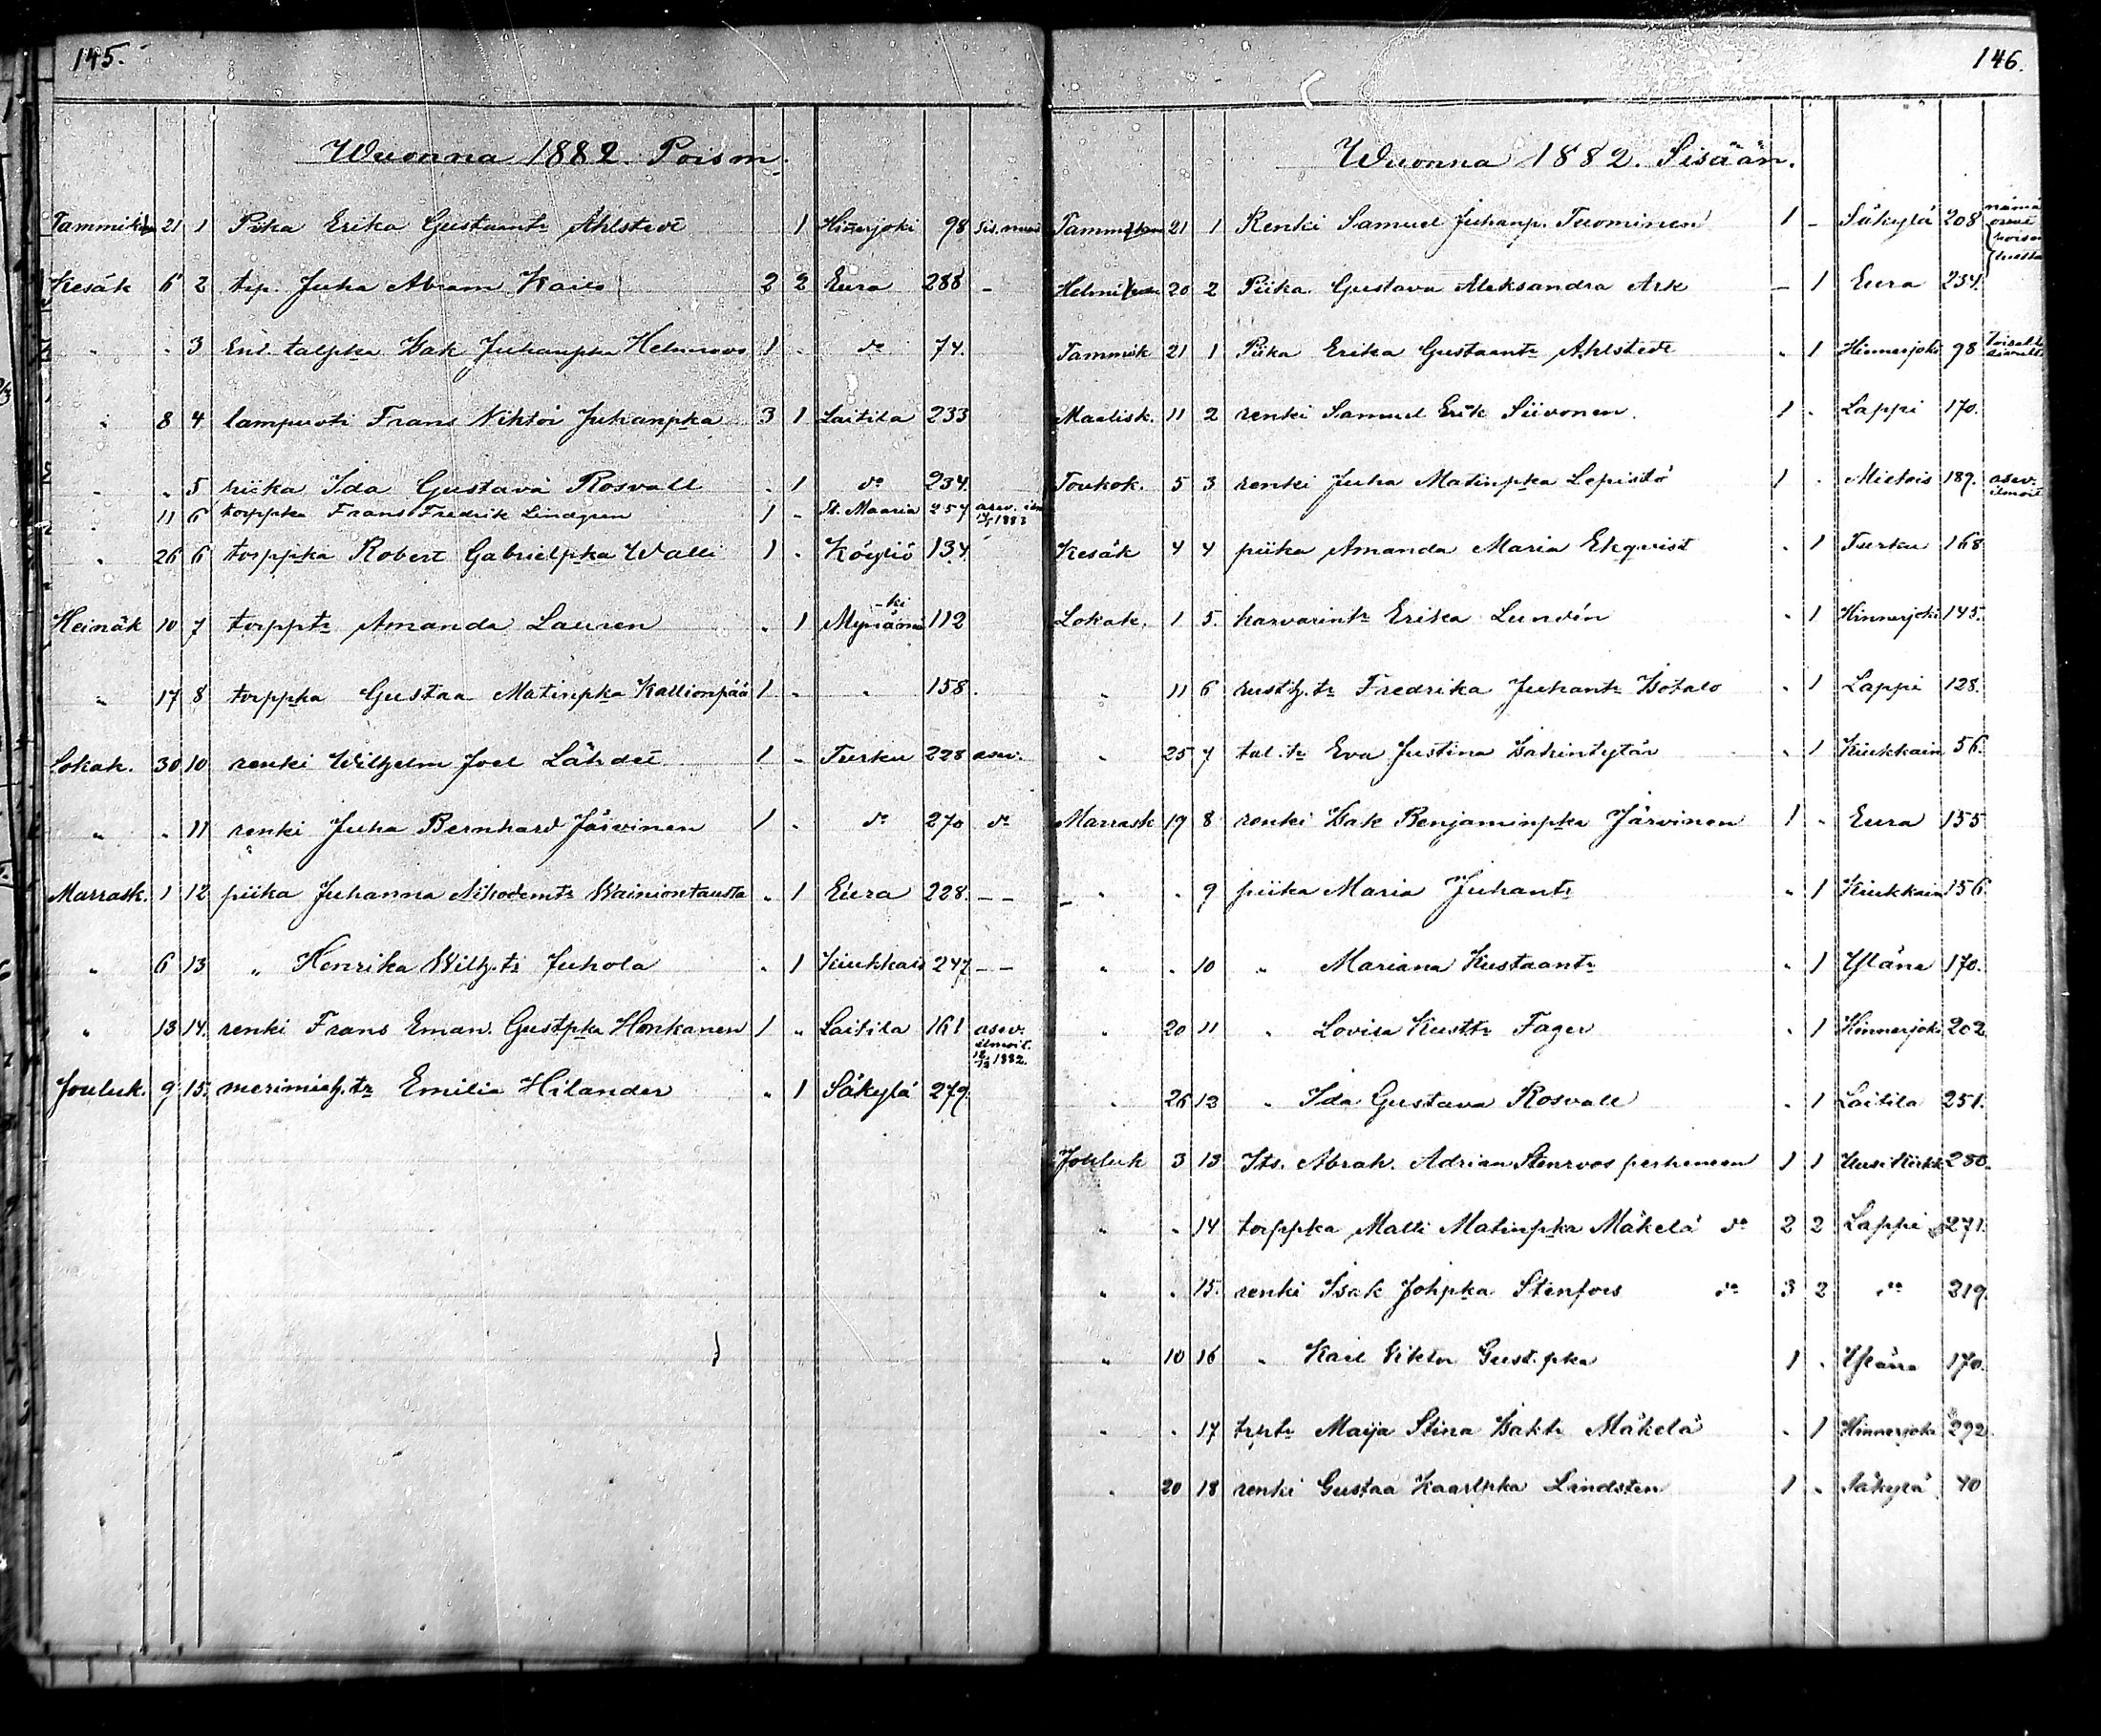 145.
Wuonna 1882 Poism.
Tammik 21 1 Piika Erika Gustaantr Ahlstedt 1 Hinerjoki 98 sis. muu
Kesäk 6 2 trp. Juha Abram Kails 2 2 Eura 288 -
" . 3 Ent. talpka Isak Juhanpka Helmroos 1 . do 74.
" 8 4 lampuoti Frans Viktor Juhanpka 3 1 Laitila 233
" " 5 piika Ida Gustava Rosvall . 1 do 234.
" 11 6 torppka Frans Fredrik Lindgren 1 - St. Maaria 257 asev. ilm
1883
" 26 6 torppka Robert Gabrielpka Walli 1 . Köyliö 134.
Heinäk 10 7 torpptr Amanda Lauren . 1 Mynämä-ki 112
" 17 8 torppka Gustaa Matinpka Kallionpää 1 . . 158.
Lokak. 30 10 renki Wilhelm Joel Lähdet 1 - Turku 228 asev.
" . 11 renki Juha Bernhard Järvinen 1 . do 270 do
Marrask. 1 12 piika Juhanna Nikodemtr Wainiontausta . 1 Eura 228. - -
" 6 13 " Henrika Wilh.tr Juhola . 1 Kiukkais 247 - -
" 13 14. renki Frans Eman. Gustpka Honkanen 1 " Laitila 161 asev.
ilmoit.
1882.
Jouluk. 9 15. merimieh.tr Emilia Hilander " 1 Säkylä 279.
146.
Wuonna 1882. Sisään.
Tammikuu 21 1 Renki Samuel Juhanp. Tuominen 1 - Säkylä 208 nämä
ovat
Helmikuu 20 2 Piika Gustava Aleksandra Ark - 1 Eura 234.
Tammik 21 1 Piika Erika Gustaantr Ahlstedt " 1 Hinnerjoki 98
Maalisk. 11 2 renki Samuel Erik Siivonen. 1 . Lappi 170.
Toukok. 5 3 renki Juha Matinpka Lepistö 1 . Mietois 189. asev.
ilmoit
Kesäk 4 4 piika Amanda Maria Ekqvist . 1 Turku 168
Lokak. 1 5. karvarintr Erika Lundén . 1 Hinnerjoki 145.
" 11 6 rusth.tr Fredrika Juhantr Isotalo . 1 Lappi 128.
" 25 7 tal.tr Eva Justina Isakintytär . 1 Kiukkain 56.
Marrask 19 8 renki Isak Benjaminpka Järvinen 1 " Eura 155
" . 9 piika Maria Juhantr " 1 Kiukkain 156.
" . 10 " Mariana Kustaantr " 1 Yläne 170.
" 20 11 " Lovisa Kusttr Fager . 1 Hinnerjoki 202
" 26 12 " Ida Gustava Rosvall . 1 Laitila 251.
Jouluk 3 13 Its. Abrah. Adrian Stenroos perheneen 1 1 Uusikirkk 280.
" . 14 torppka Matti Matinpka Mäkelä do 2 2 Lappi 271
" . 15. renki Isak Johpka Stenfors do 3 2 do 219.
" 10 16 " Karl Viktor Gust.pka 1 . Yläne 170.
" . 17 Maija Stina Isaktr Mäkelä . 1 Hinnerjoki 292
" 20 18 renki Gustaa Kaarlpka Lindsten 1 " Säkylä 40